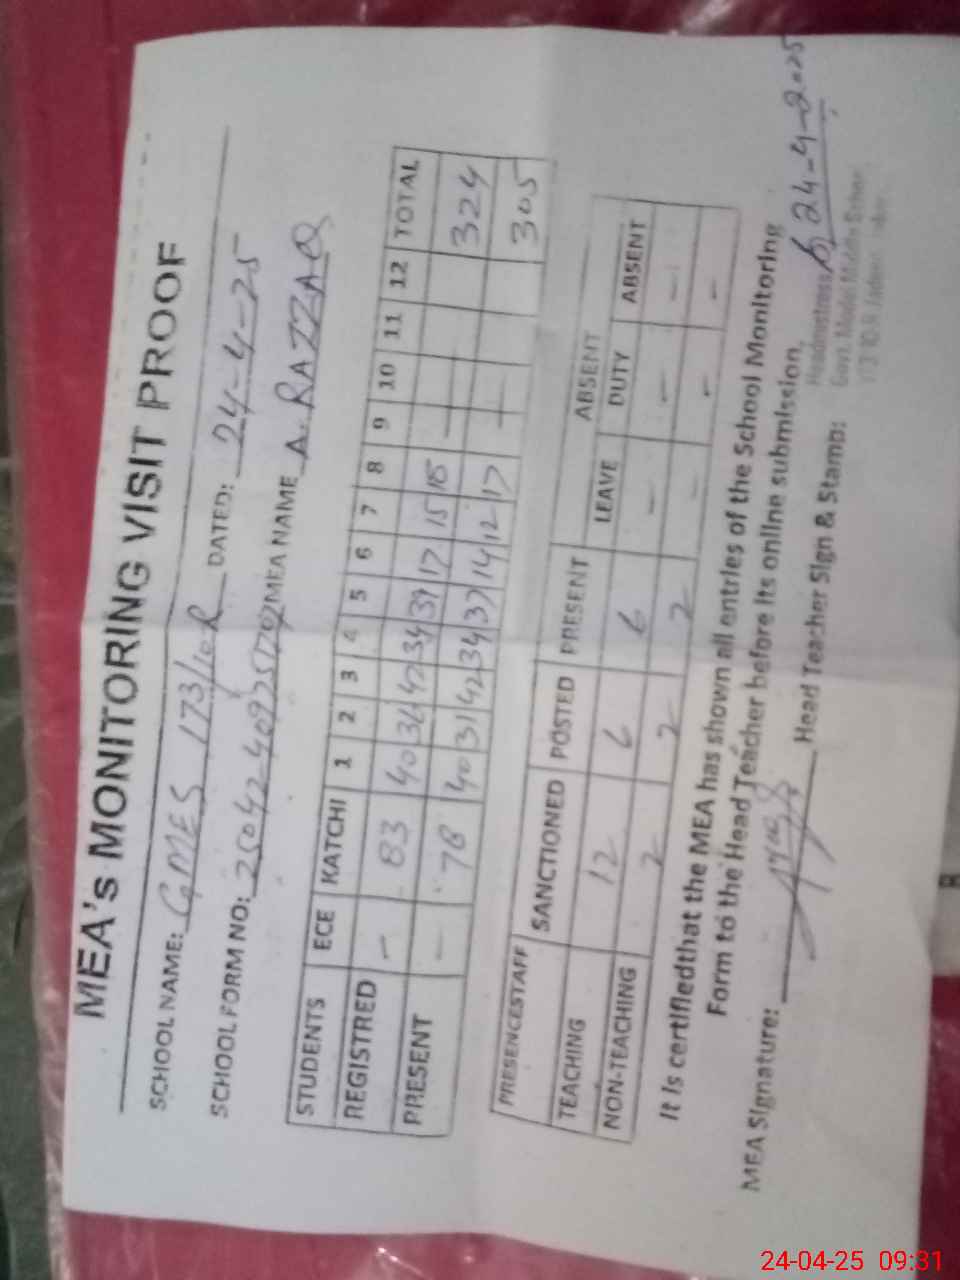 MEA's MONITORING VISIT PROOF
SCHOOL NAME: GMES 173/10R DATED: 24-4-25
SCHOOL FORM NO: MEA NAME A. RAZZAQ
STUDENTS ECE KATCHI 1 2 3 4 5 6 7 8 9 10 11 12 TOTAL
REGISTRED - 83 40 36 42 34 39 17 15 18 324
PRESENT - 78 40 31 42 34 37 14 12 17 305
PRESENCESTAFF SANCTIONED POSTED PRESENT ABSENT
LEAVE DUTY ABSENT
TEACHING 12 6 6 - - -
NON-TEACHING 2 2 2 - - -
It is certifiedthat the MEA has shown all entries of the School Monitoring
Form to the Head Teacher before its online submission.
MEA Signature: Head Teacher Sign & Stamp: 24-4-2025
Headmistress
Govt. Model Middle School
24-04-25 09:31